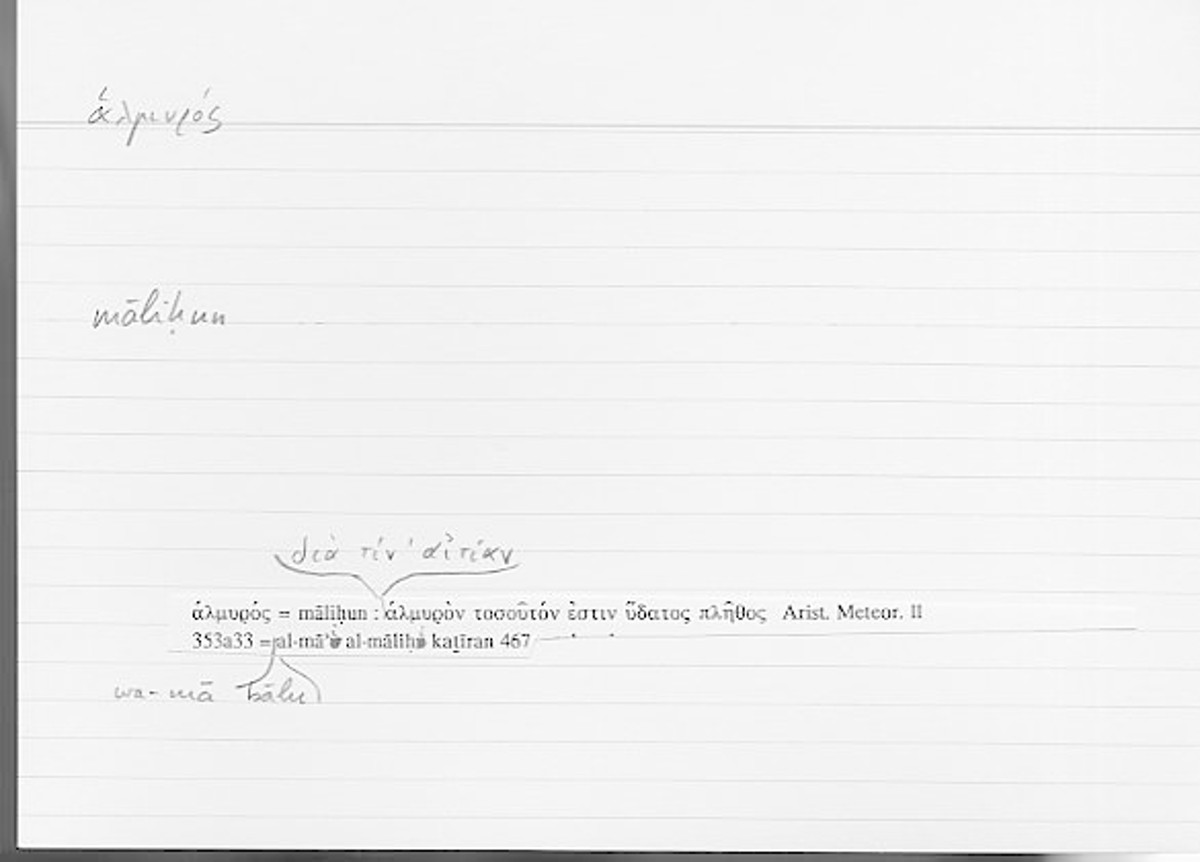 ἁλμυρός
māliḥun
διὰ τίν' αἰτίαν
ἁλμυρός = māliḥun : ἁλμυρὸν τοσοῦτόν ἐστιν ὕδατος πλῆθος Arist. Meteor. II
353a33 = al-mā' al-māliḥ kaṯīran 467
wa-mā bālu